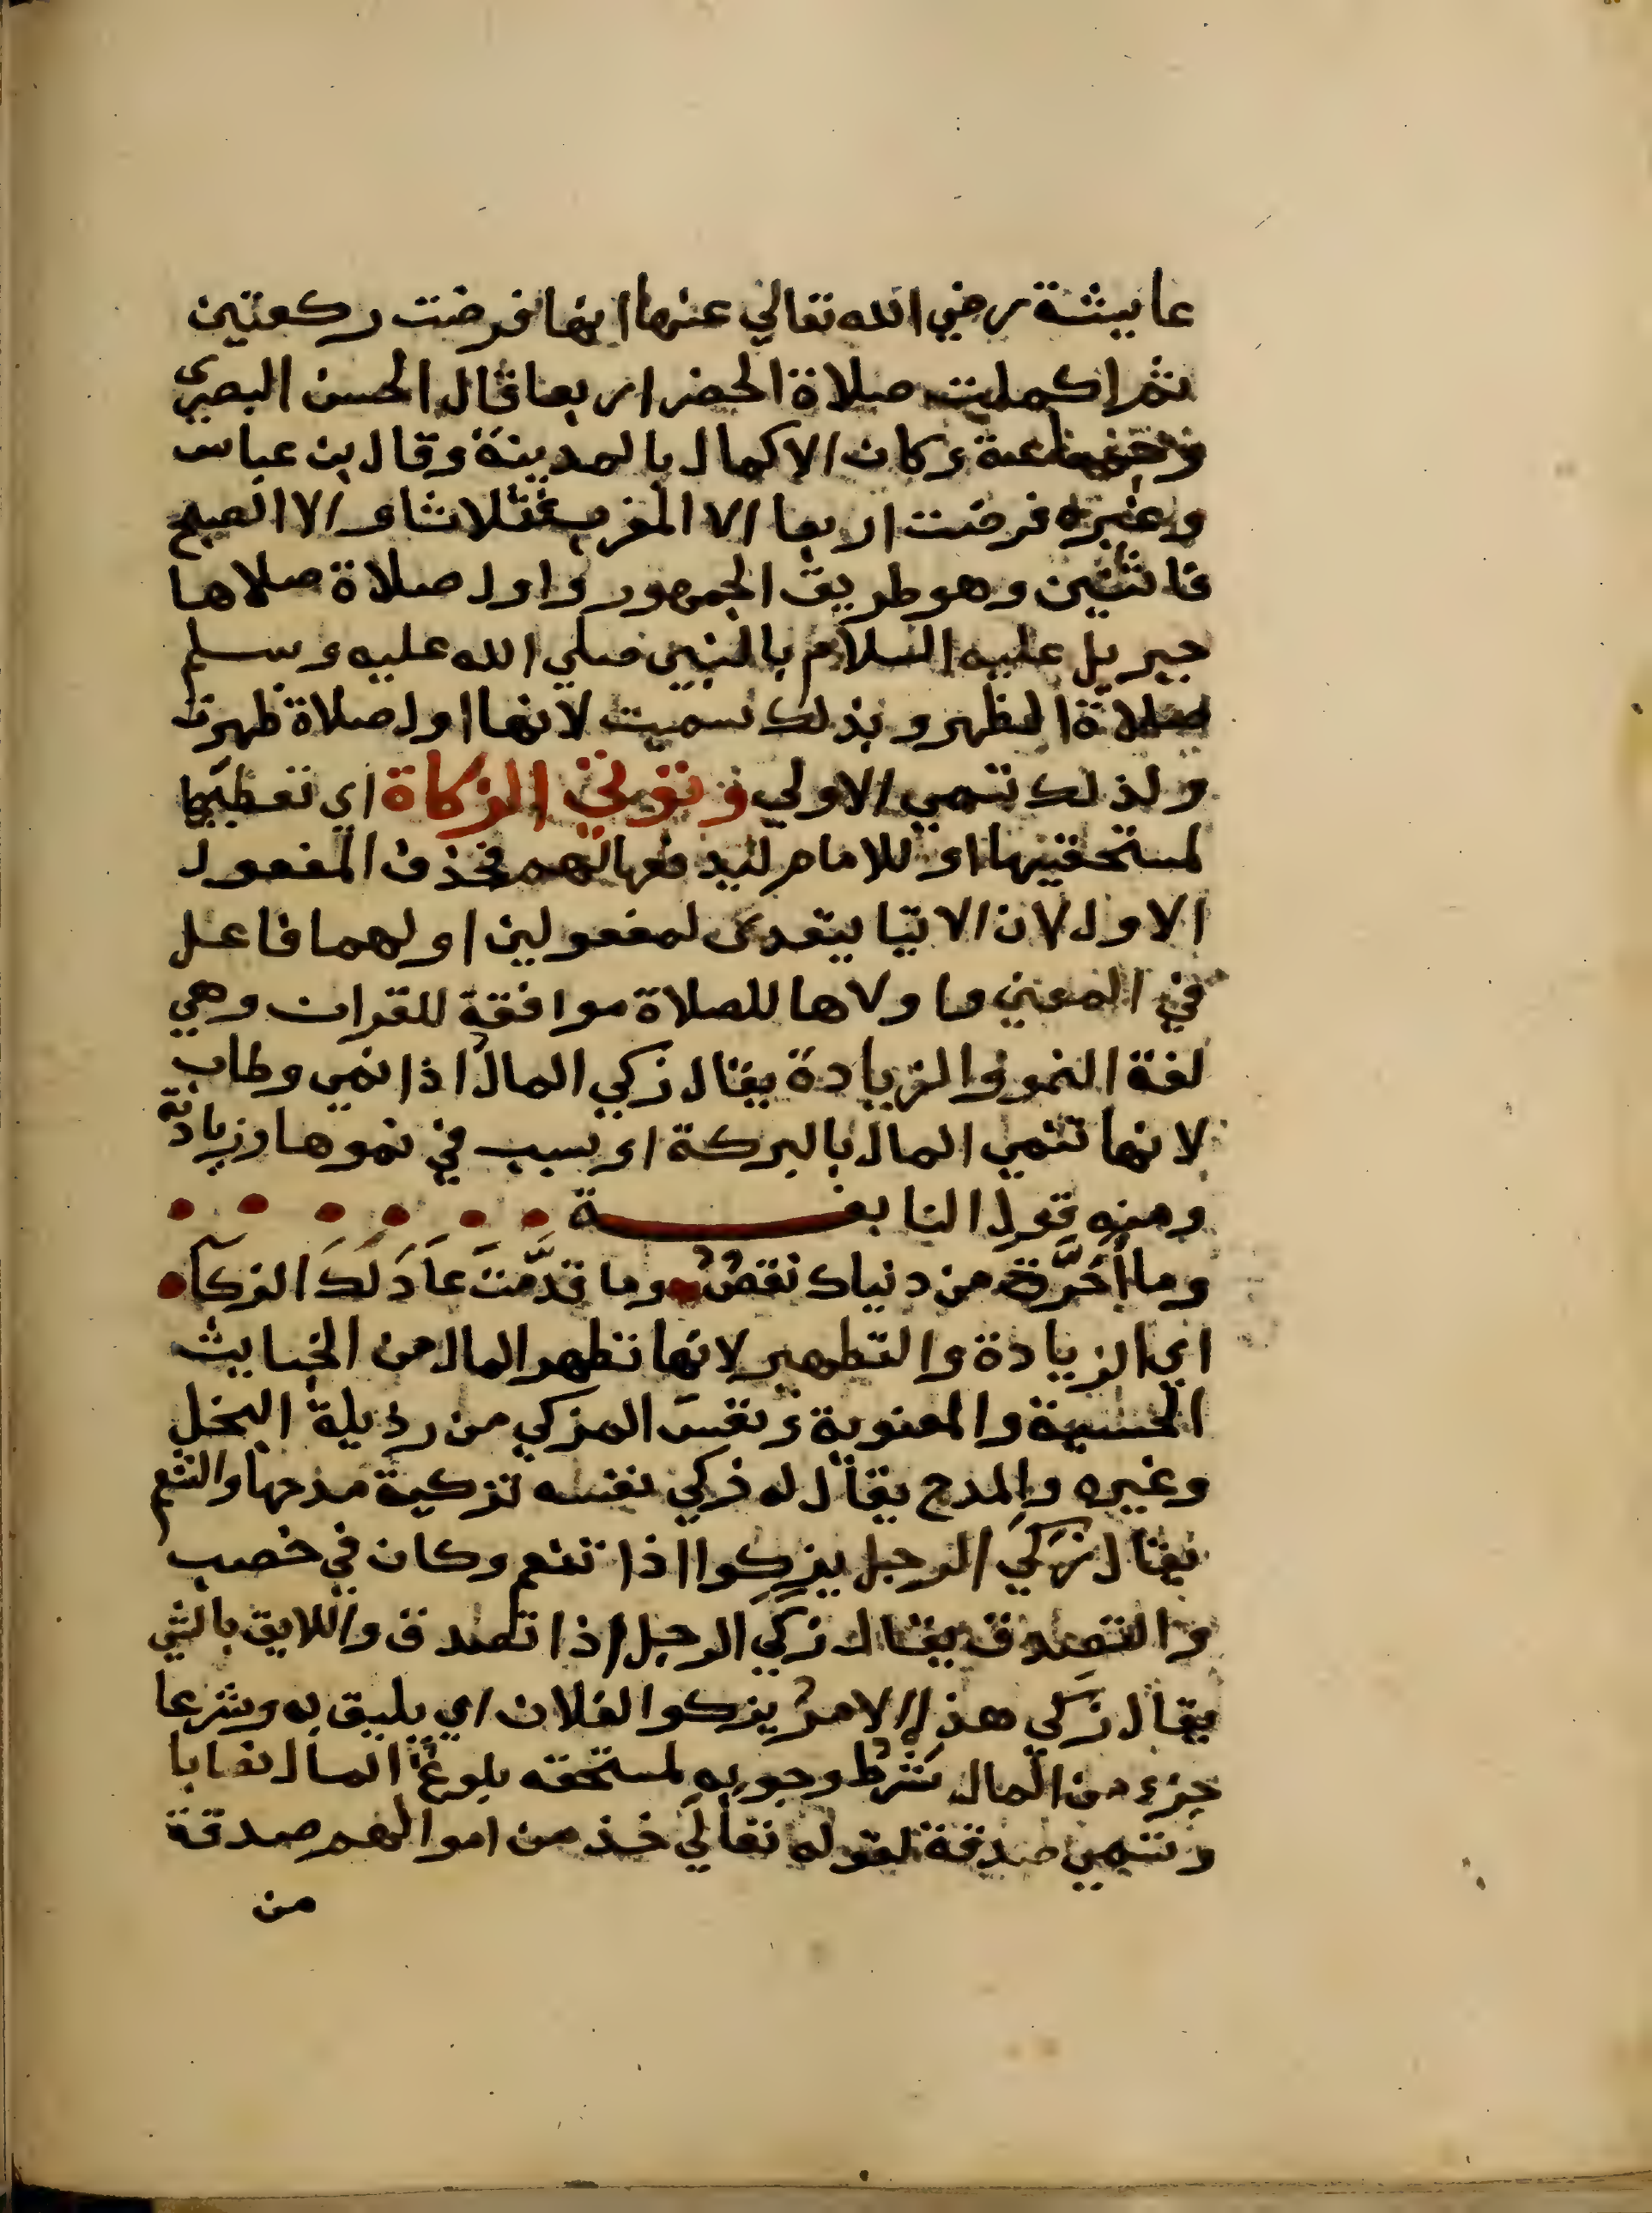 عايشة رضي الله تعالي عنها انها فرضت ركعتين
ثم اكملت صلاة الحضر اربعا قال الحسن البصرى
وكان الاكمال بالمدينة وقال بن عباس
وغيره فرضت اربعا الا المغرب فثلاثا والا الصبح
فاثنتين وهو طريق الجمهور واول صلاة صلاها
جبريل عليه السلام بالنبي صلي الله عليه وسلم
صلاة الظهر وبذلك سميت لانها اول صلاة ظهرت
ولذلك تسمي الاولي وتوتي الزكاة اي تعطيها
لمستحقيها او للامام ليدفعها لهم فحذف المفعول
الاول لان الايتا يتعدى لمفعولين اولهما فاعل
في المعني واولاها للصلاة موافقة للقران وهي
لغة النمو والزيادة يقال زكي المال اذا نمي وطاب
لانها تنمي المال بالبركة او تسبب في نموها وزيادته
ومنه قول النابغة
وما أَخَّرْتَ من دنياك نقصٌ وما قدَّمْتَ عَادَ لَكَ الزكآ
اي الزيادة والتطهير لانها تطهر المال من الخبايث
الحسية والمعنوية ونفس المزكي من رذيلة البخل
وغيره والمدح يقال له زكي نفسه تزكية مدحها والتنعم
يقال زَكَي الرجل يزكوا اذا تنعم وكان في خصب
والتصدق يقال زكي الرجل اذا تصدق واللايق بالشي
يقال زكي هذا الامر يزكوا لفلان اي يليق به وشرعا
جزء من المال شَرْطُ وجوبه لمستحقه بلوغ المال نصابا
وتسمي صدقة لقوله تعالي خذ من اموالهم صدقة
من